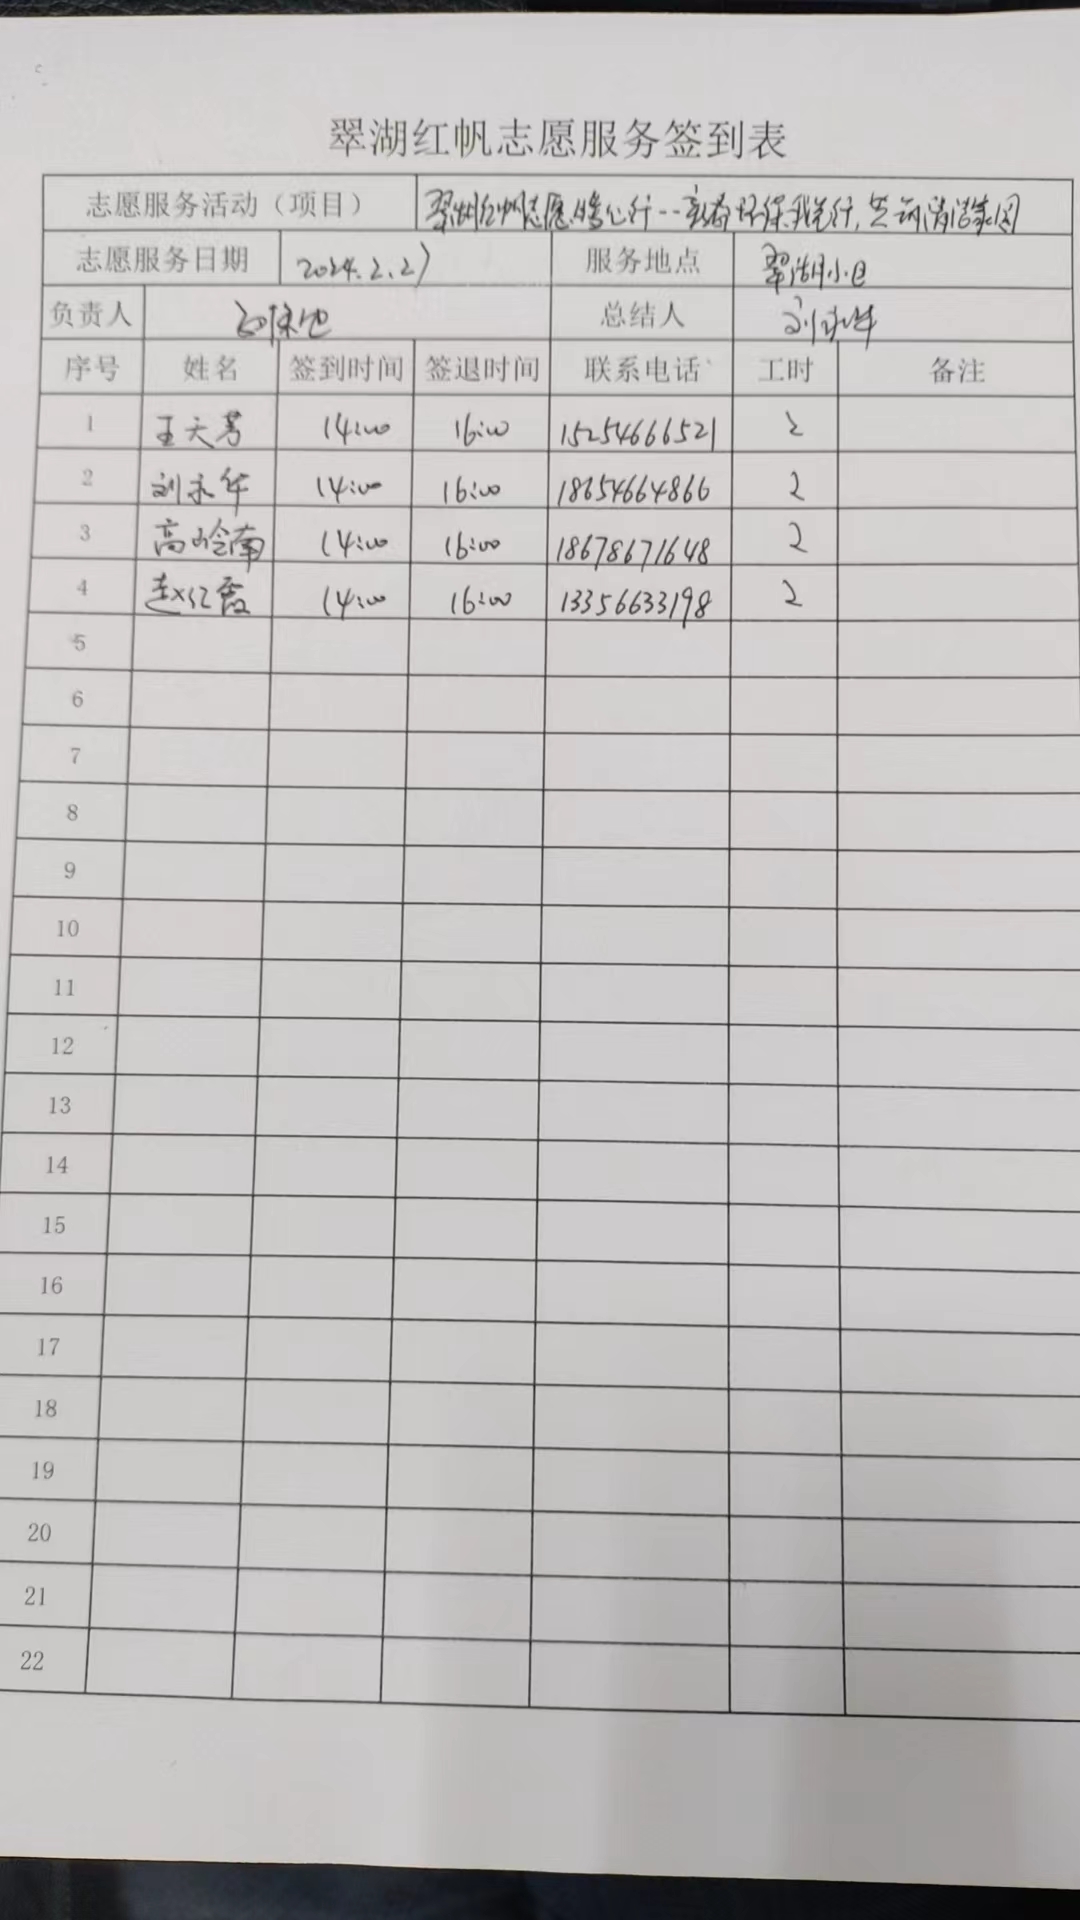 翠湖红帆志愿服务签到表
志愿服务活动（项目） 翠湖红帆志愿暖心行--新春环保我先行,共动清洁家园
志愿服务日期 2024.2.27 服务地点 翠湖小区
负责人 总结人 刘永华
序号 姓名 签到时间 签退时间 联系电话 工时 备注
1 王天芳 14:00 16:00 15254666521 2
2 刘永华 14:00 16:00 18654664866 2
3 高岭南 14:00 16:00 18678671648 2
4 赵仁霞 14:00 16:00 13356633198 2
5
6
7
8
9
10
11
12
13
14
15
16
17
18
19
20
21
22